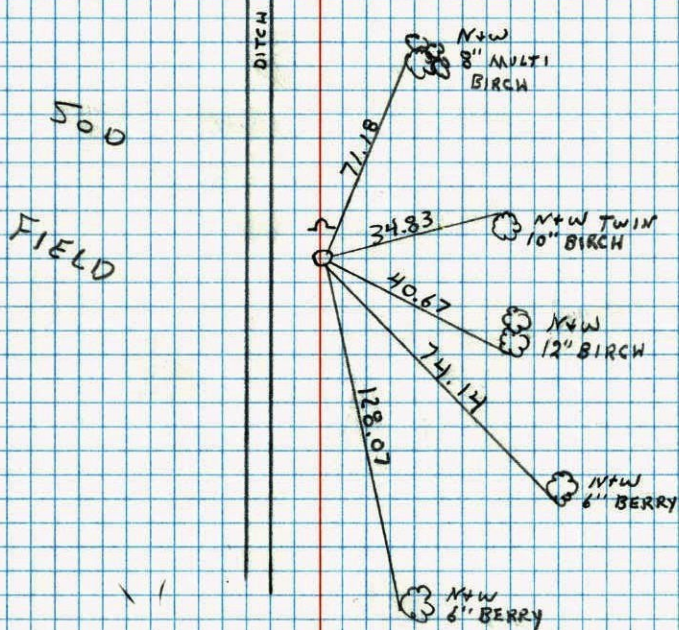 DITCH
N+W
8" MULTI
BIRCH
SOD
FIELD
71.18
34.83
N+W TWIN
10" BIRCH
40.67
N+W
12" BIRCH
74.14
128.07
N+W
6" BERRY
N+W
6" BERRY